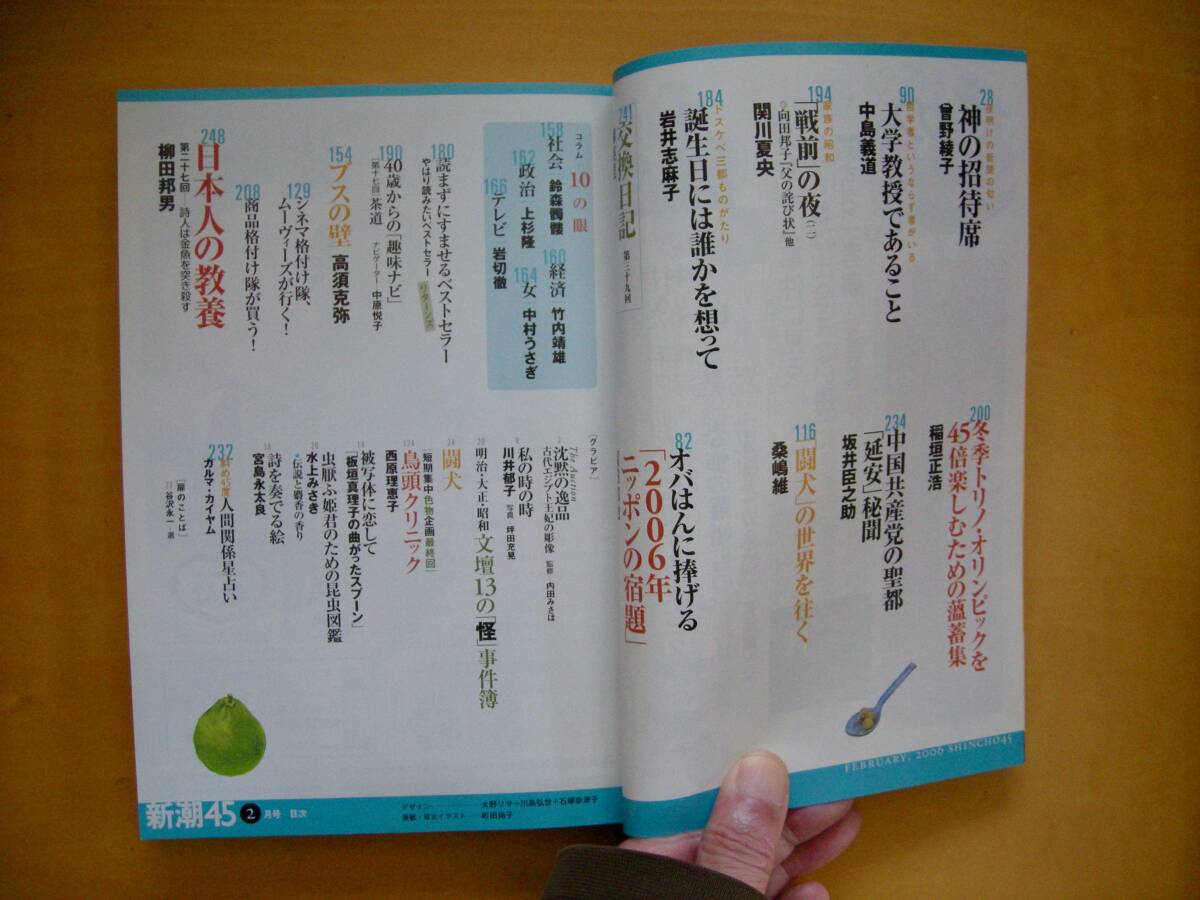 28
夜明けの新聞の匂い
神の招待席
曾野綾子
90
哲学者というならず者がいる
大学教授であること
中島義道
194
家族の昭和
「戦前」の夜(二)
向田邦子『父の詫び状』他
関川夏央
184
ドスケベ三都ものがたり
誕生日には誰かを想って
岩井志麻子
241
交換日記
第三十九回
200
冬季トリノ・オリンピックを
45倍楽しむための薀蓄集
稲垣正浩
234
中国共産党の聖都
「延安」秘聞
坂井臣之助
116
「闘犬」の世界を往く
桑嶋維
82
オバはんに捧げる
「2006年
ニッポンの宿題」
FEBRUARY, 2006 SHINCHO45
コラム
10の眼
158
社会 鈴森髑髏
160
経済 竹内靖雄
162
政治 上杉隆
164
女 中村うさぎ
166
テレビ 岩切徹
180
読まずにすませるベストセラー
やはり読みたいベストセラー
リターンズ
190
40歳からの「趣味ナビ」
[第十七回]茶道
ナビゲーター 中原悦子
154
ブスの壁 高須克弥
129
シネマ格付け隊、
ムーヴィーズが行く!
208
商品格付け隊が買う!
248
日本人の教養
第二十七回―詩人は金魚を突き殺す
柳田邦男
[グラビア]
3
The Auction
沈黙の逸品
古代エジプト王妃の彫像 監修 内田みさほ
9
私の時の時
川井郁子 写真 坪田充晃
20
明治・大正・昭和 文壇13の「怪」事件簿
24
闘犬
[短期集中色物企画最終回]
174
鳥頭クリニック
西原理恵子
14
被写体に恋して
「板垣真理子の曲がったスプーン」
虫厭ふ姫君のための昆虫図鑑
・伝説と麝香の香り
水上みさき
詩を奏でる絵
宮島永太良
232
斜め45度 人間関係星占い
ガルマ・カイヤム
[扉のことば]
谷沢永一・選
新潮45 2月号 目次
デザイン 大野リサ+川島弘世+石塚奈津子
表紙・目次イラスト 町田尚子